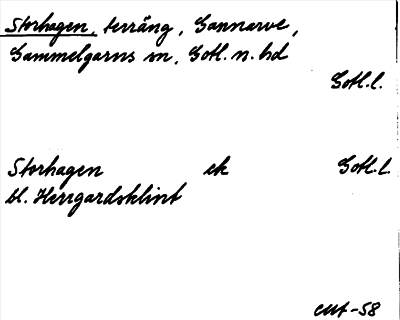 Storhagen, terräng, Gannarve,
Gammelgarns sn, Gotl. n. hd
Gotl. l.
Storhagen ek Gotl. l.
bl. Herrgardsklint
-58